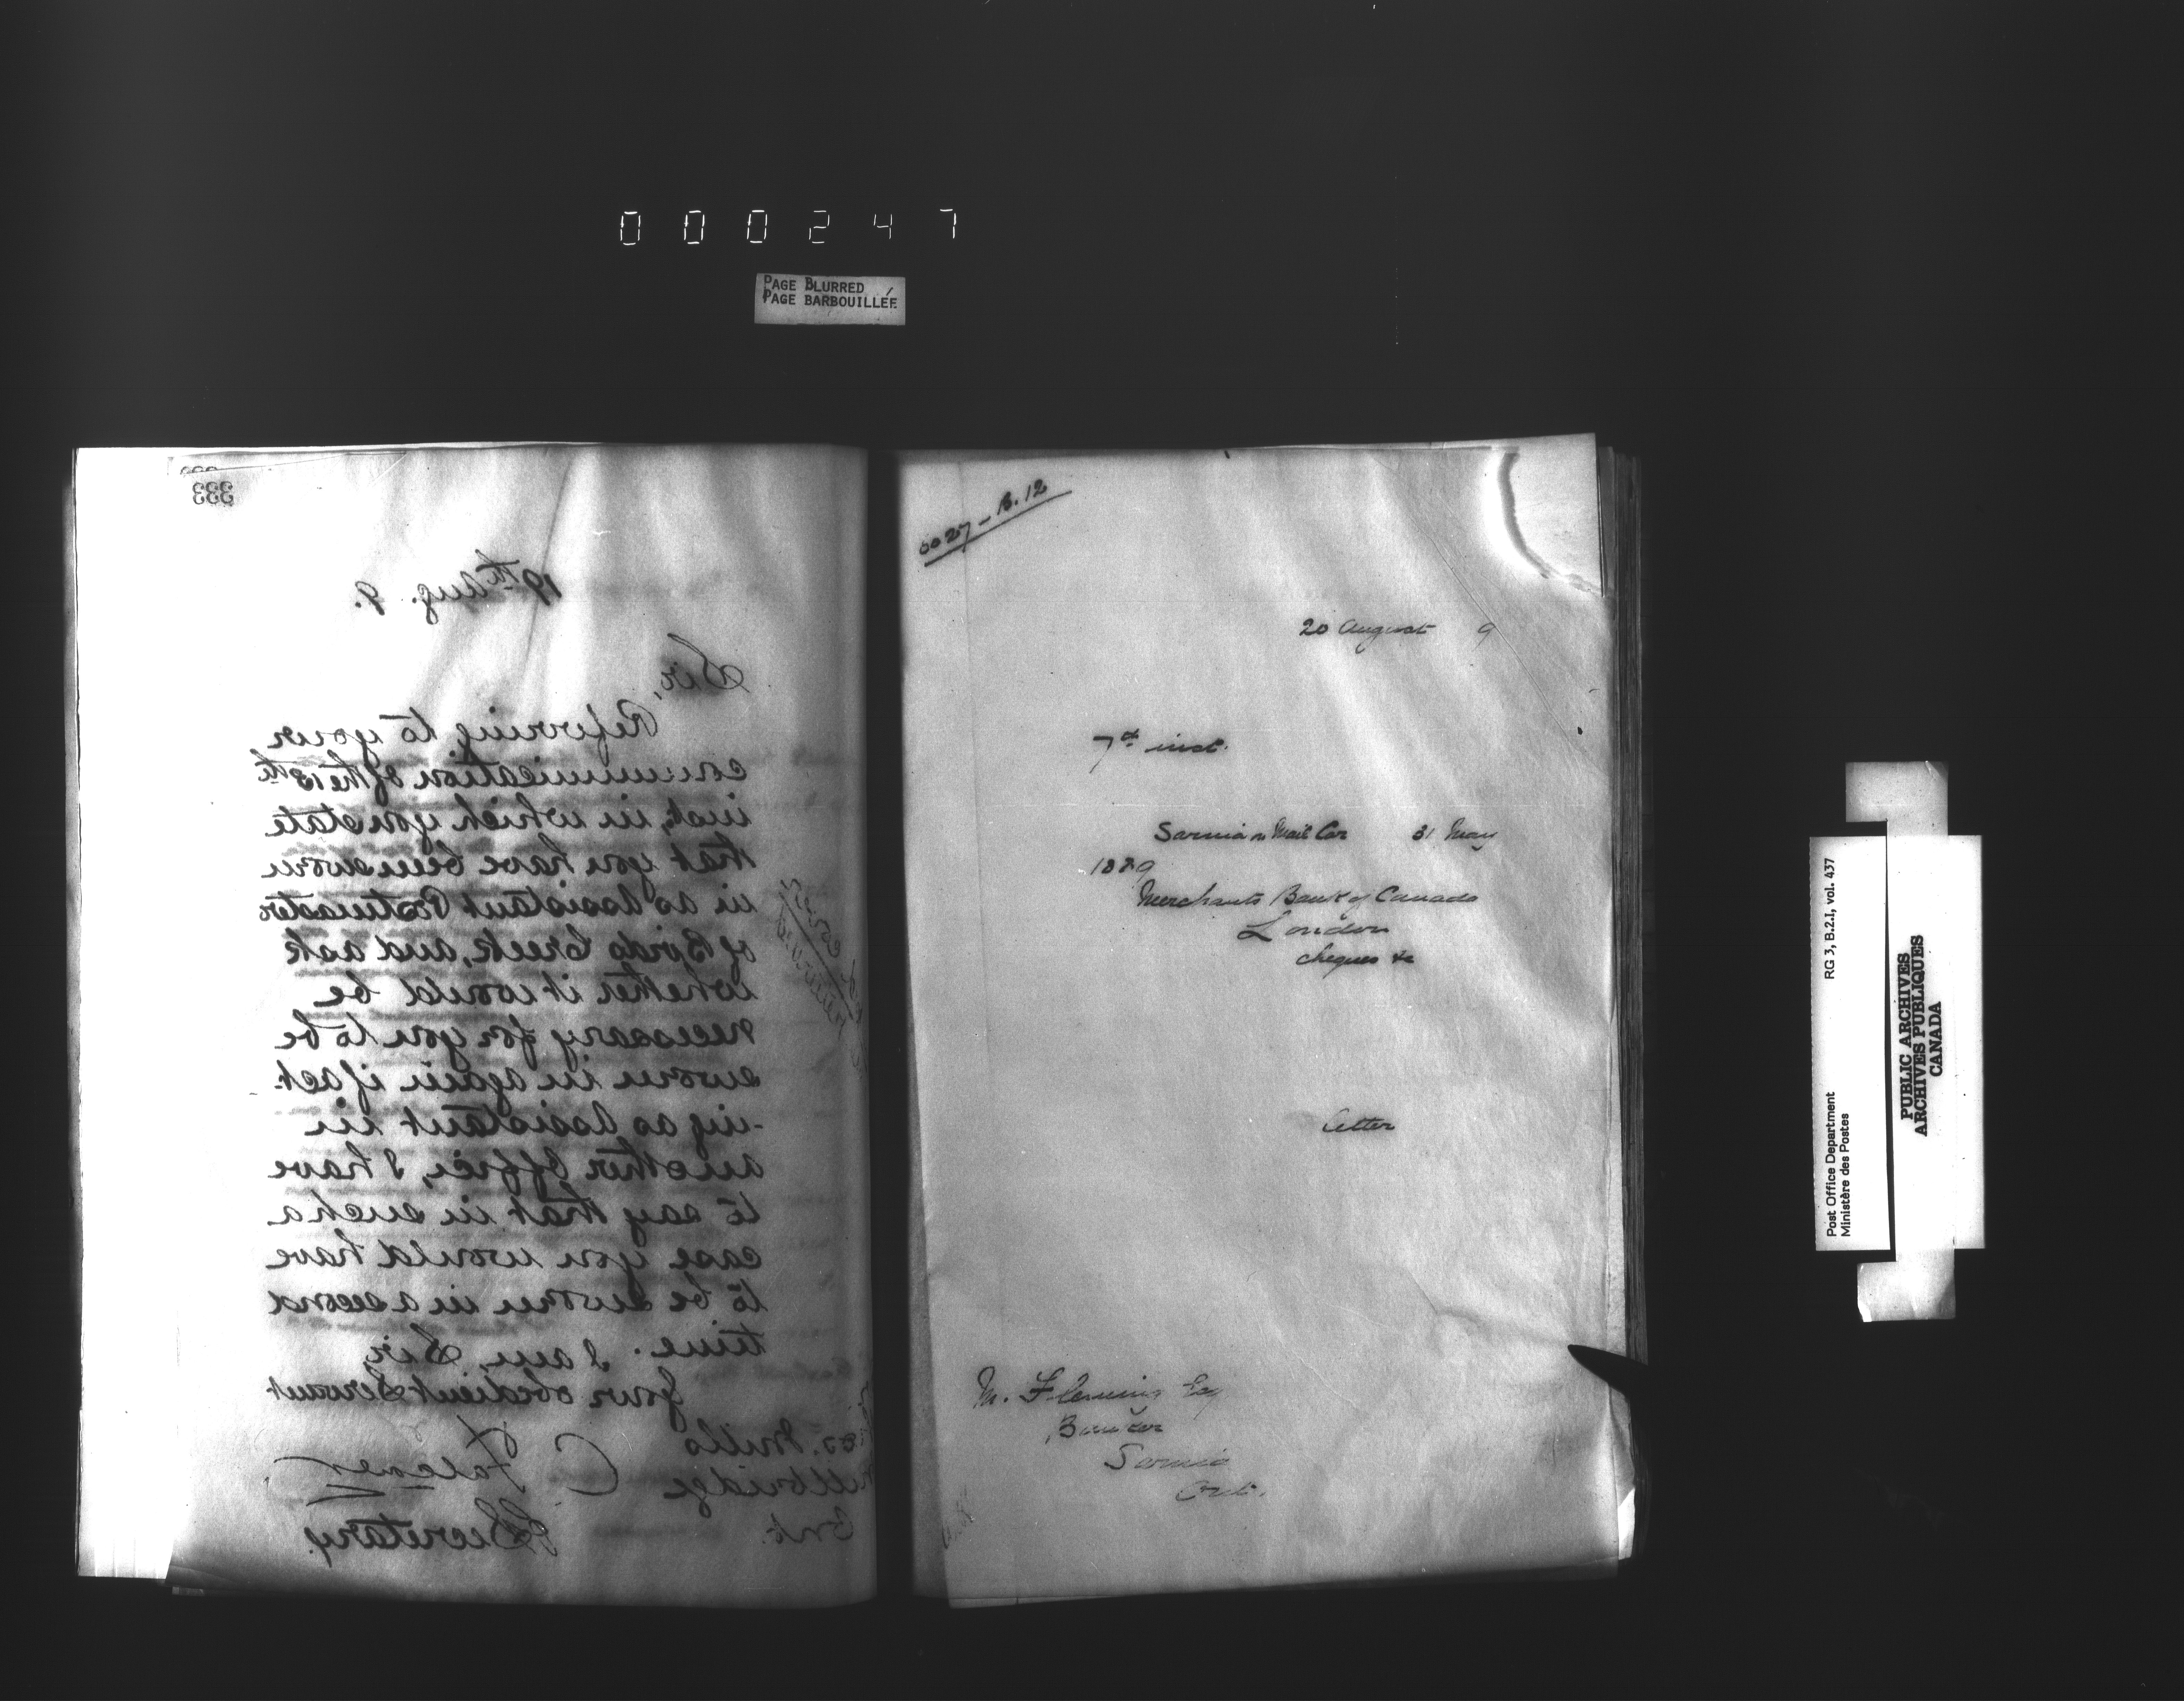 000247
PAGE BLURRED
PAGE BARBOUILLÉE
333
19th Aug. 9.
Sir,
Referring to your
communication of the 13th
inst, in which you state
that you have been sworn
in as Assistant Postmaster
of Birds Creek, and ask
whether it would be
necessary for you to be
sworn in again if act-
-ing as Assistant in
another Office, I have
to say that in such a
case you would have
to be sworn in a second
time. I am, Sir,
Your obedient Servant
Mills
Millbridge
Ont.
Secretary
0027 - B. 12
20 August 9
7th inst.
Sarnia Mail Car 31 May
1889
Merchants Bank of Canada
London
cheques &c
letter
M. Fleming Esq
Banker
Sarnia
Ont.
Post Office Department
Ministère des Postes
RG 3, B.2.I, vol. 437
PUBLIC ARCHIVES
ARCHIVES PUBLIQUES
CANADA